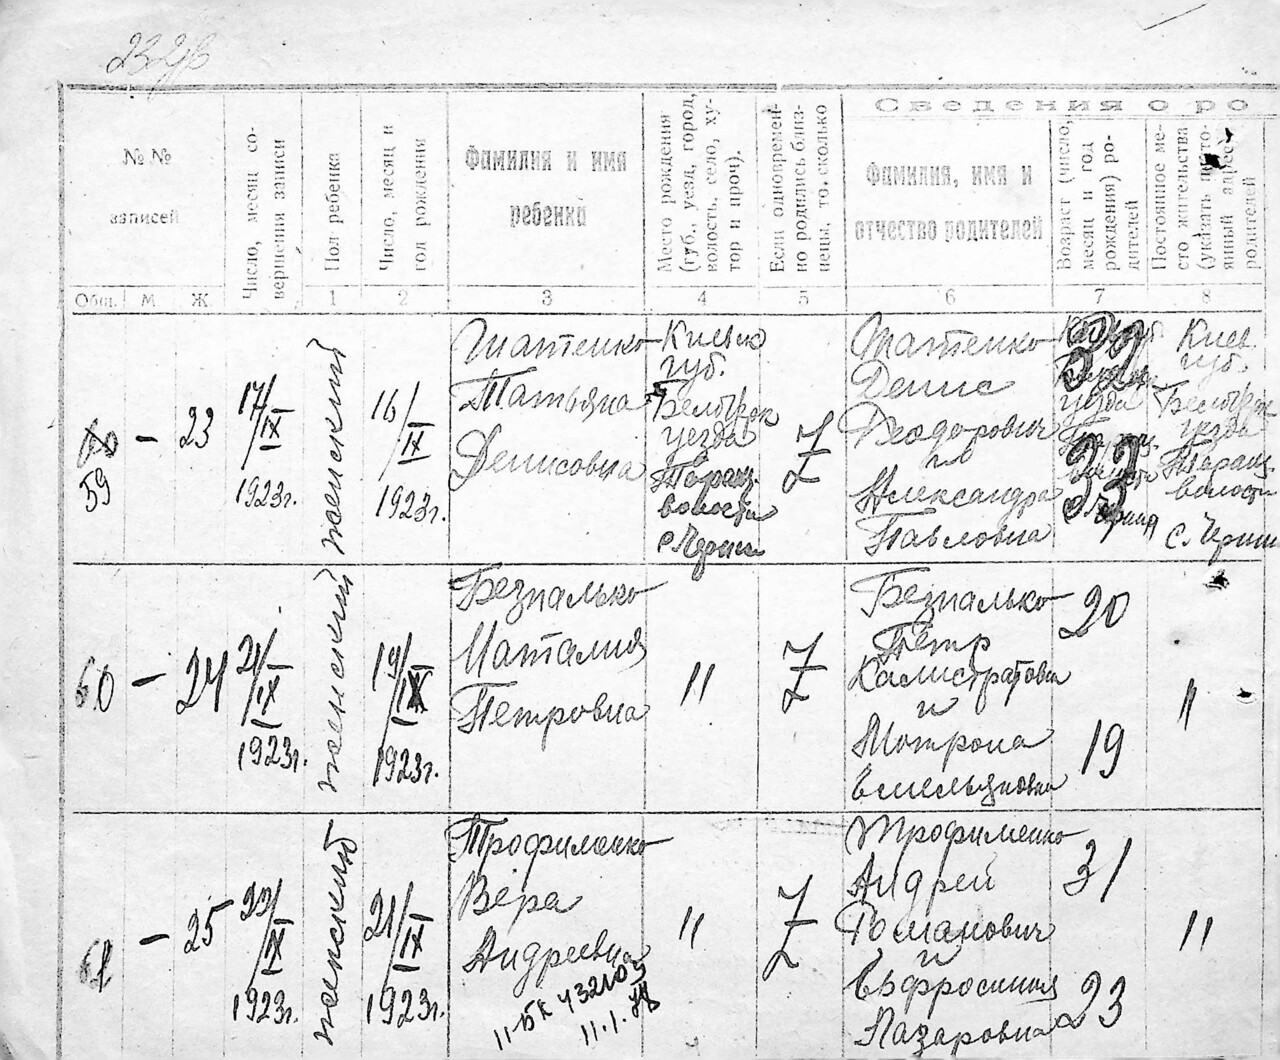 Сведения о ро
№ №
записей
Число, месяц со-
вершения записи
Пол ребенка
Число, месяц и
год рождения
Фамилия и имя
ребенка
Место рождения
(губ., уезд, город,
волость, село, ху-
тор и проч.).
Если одновремен-
но родились близ-
нецы, то, сколько
Фамилия, имя и
отчество родителей
Возраст (число,
месяц и год
рождения) ро-
дителей
Постоянное ме-
сто жительства
(указать
янный адрес
родителей
Общ. М Ж 1 2 3 4 5 6 7 8
59 — 23
17/IX
1923г.
женский
16/IX
1923г.
Шатенко
Татьяна
Денисовна
Киевск
губ.
уезда
Таращ.
волости
Z
Шатенко
Денис
Феодорович
и
Александра
Павловна
32
Киев.
губ.
уезда
Таращ.
волости
60 — 24
21/IX
1923г.
женский
19/IX
1923г.
Безпалько
Наталия
Петровна
"
Z
Безпалько
Пётр
Калистратови
и
Мотрона
Емельяновна
20
19
"
61 — 25
22/IX
1923г.
женский
21/IX
1923г.
Трофименко
Вера
Андреевна
"
Z
Трофименко
Андрей
Романович
и
Евфросиния
Лазаровна
31
23
"